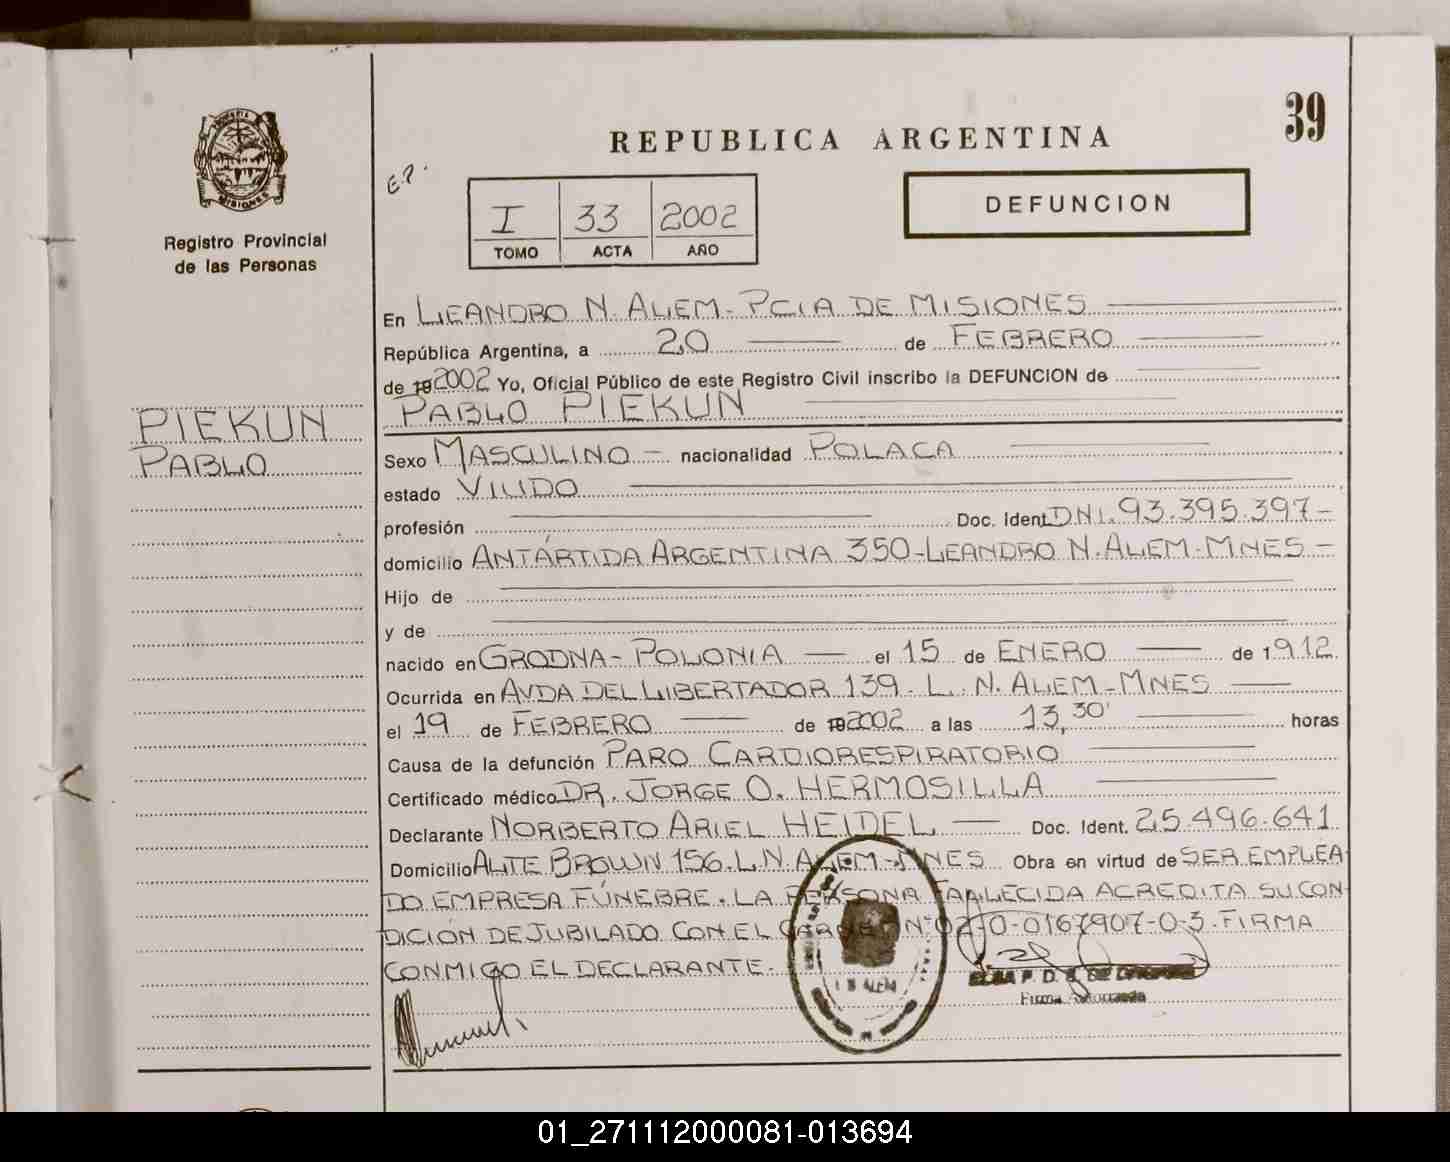 39
REPUBLICA ARGENTINA
PROVINCIA
MISIONES
Registro Provincial
de las Personas
E.P.
I 33 2002
TOMO ACTA AÑO
DEFUNCION
En LEANDRO N. ALEM - PCIA DE MISIONES
República Argentina, a 20 de FEBRERO
de 19 2002 Yo, Oficial Público de este Registro Civil inscribo la DEFUNCION de
PABLO PIEKUN
PIEKUN
PABLO
Sexo MASCULINO - nacionalidad POLACA
estado VIUDO
profesión Doc. Ident. DNI. 93.395.397-
domicilio ANTÁRTIDA ARGENTINA 350-LEANDRO N. ALEM-MNES -
Hijo de
y de
nacido en GRODNA - POLONIA el 15 de ENERO de 1912
Ocurrida en AVDA DEL LIBERTADOR 139. L. N. ALEM - MNES
el 19 de FEBRERO de 19 2002 a las 13,30' horas
Causa de la defunción PARO CARDIORESPIRATORIO
Certificado médico DR. JORGE O. HERMOSILLA
Declarante NORBERTO ARIEL HEIDEL Doc. Ident. 25.496.641
Domicilio ALTE BROWN 156. L.N. ALEM-MNES Obra en virtud de SER EMPLEA-
DO EMPRESA FÚNEBRE. LA PERSONA FALLECIDA ACREDITA SU CON-
DICIÓN DE JUBILADO CON EL CARNET Nº 02-0-0167907-0-3. FIRMA
CONMIGO EL DECLARANTE.
L N ALEM
ELBA F. D. DE
Firma Autorizada
01_271112000081-013694